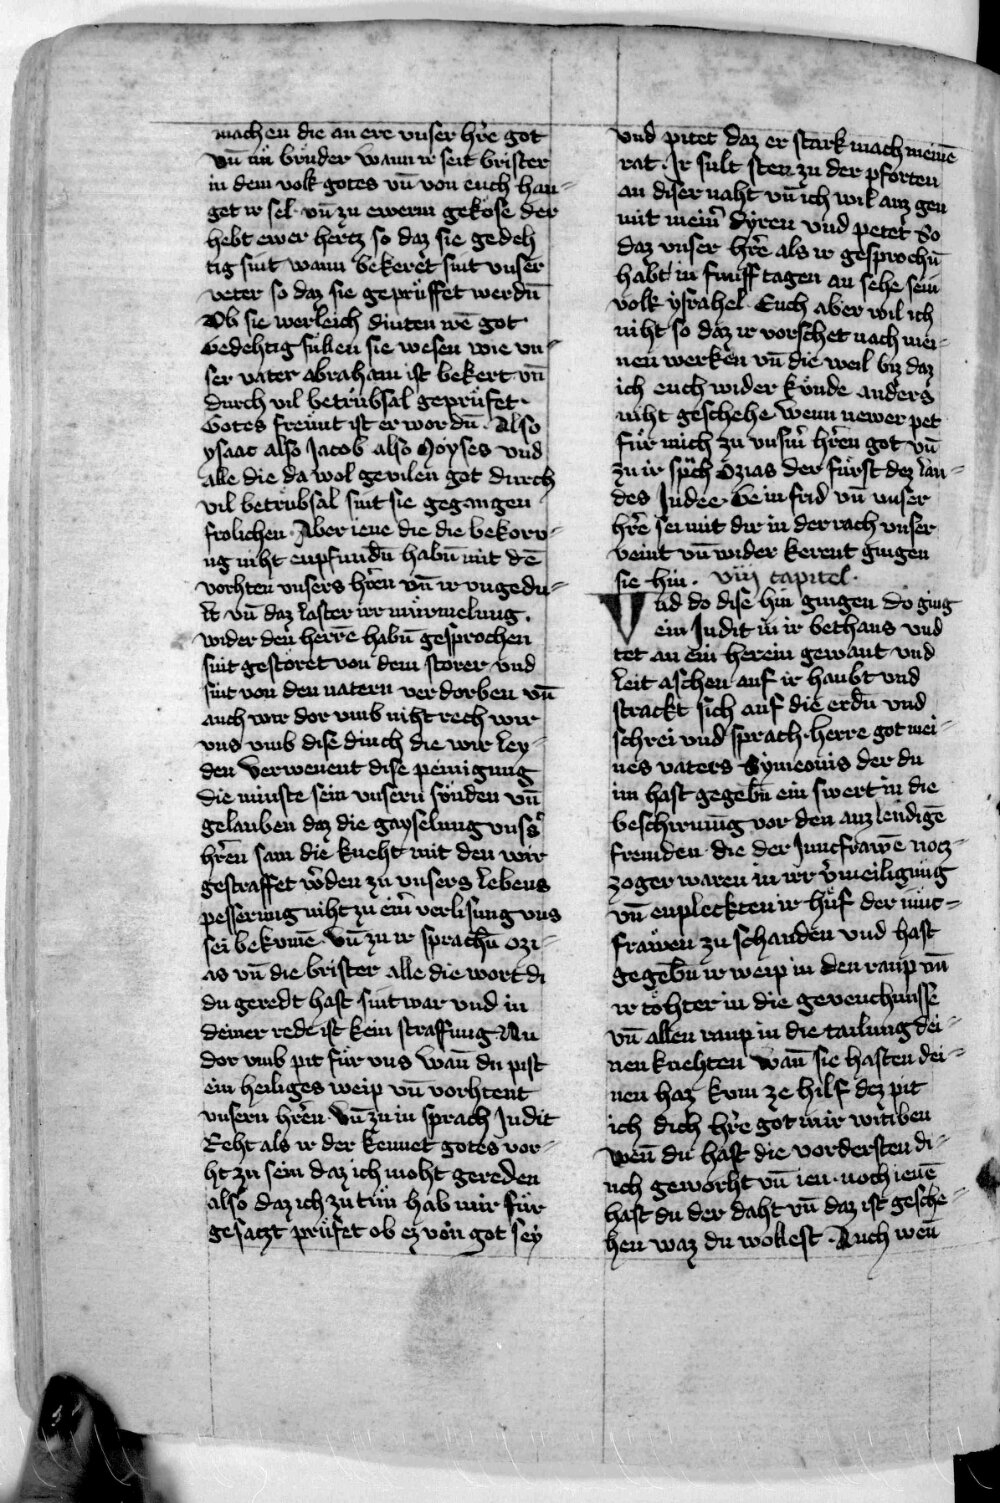 machen die an ere vnser hr̄e got
vn̄ nu̍ bruͤder wann ir seit brister
in dem volk gotes vn̄ von euch han=
get ir sel · vn̄ zu ewerm gekoͤse der
hebt ewer hertz so daz sie gedeh
tig sint wann bekeret sint vnser
veter so daz sie gepruͤffet werdn̄
Ob sie werleich dinten irē got
Gedehtig sullen sie wesen wie vn=
ser vater abraham ist bekert vn̄
durch vil betrubsal gepruͤfet ·
Gotes freunt ist er wordn̄ · Also
ysaac also Jacob also Moyses vnd
alle die da wol gevilen got durch
vil betruͤbsal sint sie gegangen
frolichen · Aber iene die die bekoru=
ng niht enpfundn̄ habn̄ mit dē
vorhten vnsers hr̄en vn̄ ir vngedu=
lt vn̄ daz laster irr muͤrmelung ·
wider den herre habn̄ gesprochen
sint gestoͤret von dem storer vnd
sint von den natern verdorben vn̄
auch wir dor vmb niht rech wir
vns vmb dise dinch die wir ley=
den Verwenent dise peinigung
die minste sein vnsern suͤnden vn̄
gelauben daz die gayselung vnss̾
hr̄en sam die kneht mit den wir
gestraffet w̾den zu vnsers lebens
pesserung niht zu ein̾ verlisung vns
sei bekūme · Vn̄ zu ir sprachn̄ ozi=
as vn̄ die brister alle die wort di
du geredt hast sint war vnd in
deiner rede ist kein straffung Nu
dor vmb pit fuͤr vns wan̄ du pist
ein heiliges weip vn̄ vorhtent
vnsern hr̄en · Vn̄ zu in sprach Judit
Reht als ir der kennet gotes vor=
ht zu sein daz ich moht gereden
also daz ich zu tuͤn hab mir fuͤr
gesatzt pruͤfet ob ez von got sey
vnd pitet daz er stark mach meinē
rat · Ir sult sten zu der pforten
an diser naht vn̄ ich wil auz gen
mit mein̾ dyren vnd petet So
daz vnser hr̄e als ir gesprochn̄
habt in funff tagen an sehe sein
volk ysrahel · Euch aber wil ich
niht so daz ir vorschet nach mei=
nen werken vn̄ die weil biz daz
ich euch wider kuͤnde · anders
niht geschehe wenn newer pet
fuͤr mich zu vnsm̾ hr̄en got vn̄
zu ir sp̾ch Ozias der fuͤrst dez lan=
des Judee · Ge in frid vn̄ vnser
hr̄e sei mit dir in der rach vnser
veint vn̄ wider kerent gingen
sie hin · viiij capitel ·
Vnd do dise hin gingen do ging
ein Judit in ir bethaus vnd
tet an ein herein gewant vnd
leit aschen auf ir haubt vnd
strackt sich auf die erdn̄ vnd
schrei vnd sprach · herre got mei=
nes vaters Symeonis der du
im hast gegebn̄ ein swert in die
beschirmūg vor den auzlendigē
fremden · die der Juncfrawē nocz=
zoger waren in irr v̾meiligung
vn̄ enpleckten ir huͤf der iunc=
frawen zu schanden vnd hast
gegebn̄ ir weip in den raup vn̄
ir toͤhter in die gevenchnusse
vn̄ allen raup in die tailung dei=
nen knehten wan̄ sie hasten dei=
nen haz kum ze hilf dez pit
ich dich hr̄e got mir witiben
wen̄ du hast die vordersten di=
nch geworht vn̄ ien · noch ienē
hast du der daht vn̄ daz ist gesche=
hen waz du wollest · Auch wen̄